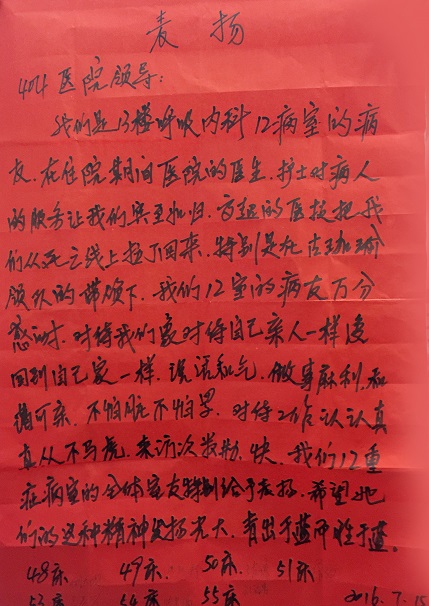 表扬
404医院领导:
我们是13楼呼吸内科12病室的病
友.在住院期间医院的医生.护士对病人
的服务让我们宾至如归.高超的医技把我
们从死亡线上拉了回来.特别是在
领队的带领下.我们12室的病友万分
感谢.对待我们象对待自己亲人一样
回到自己家一样.说话和气.做事麻利.和
蔼可亲.不怕脏不怕累.对待工作认认真
真从不马虎.来访次数勤.快.我们12重
症病室的全体室友特别给予表扬.希望她
们的这种精神发扬光大.青出于蓝而胜于蓝。
48床 49床. 50床. 51床
53床 54床 55床 2016.7.15